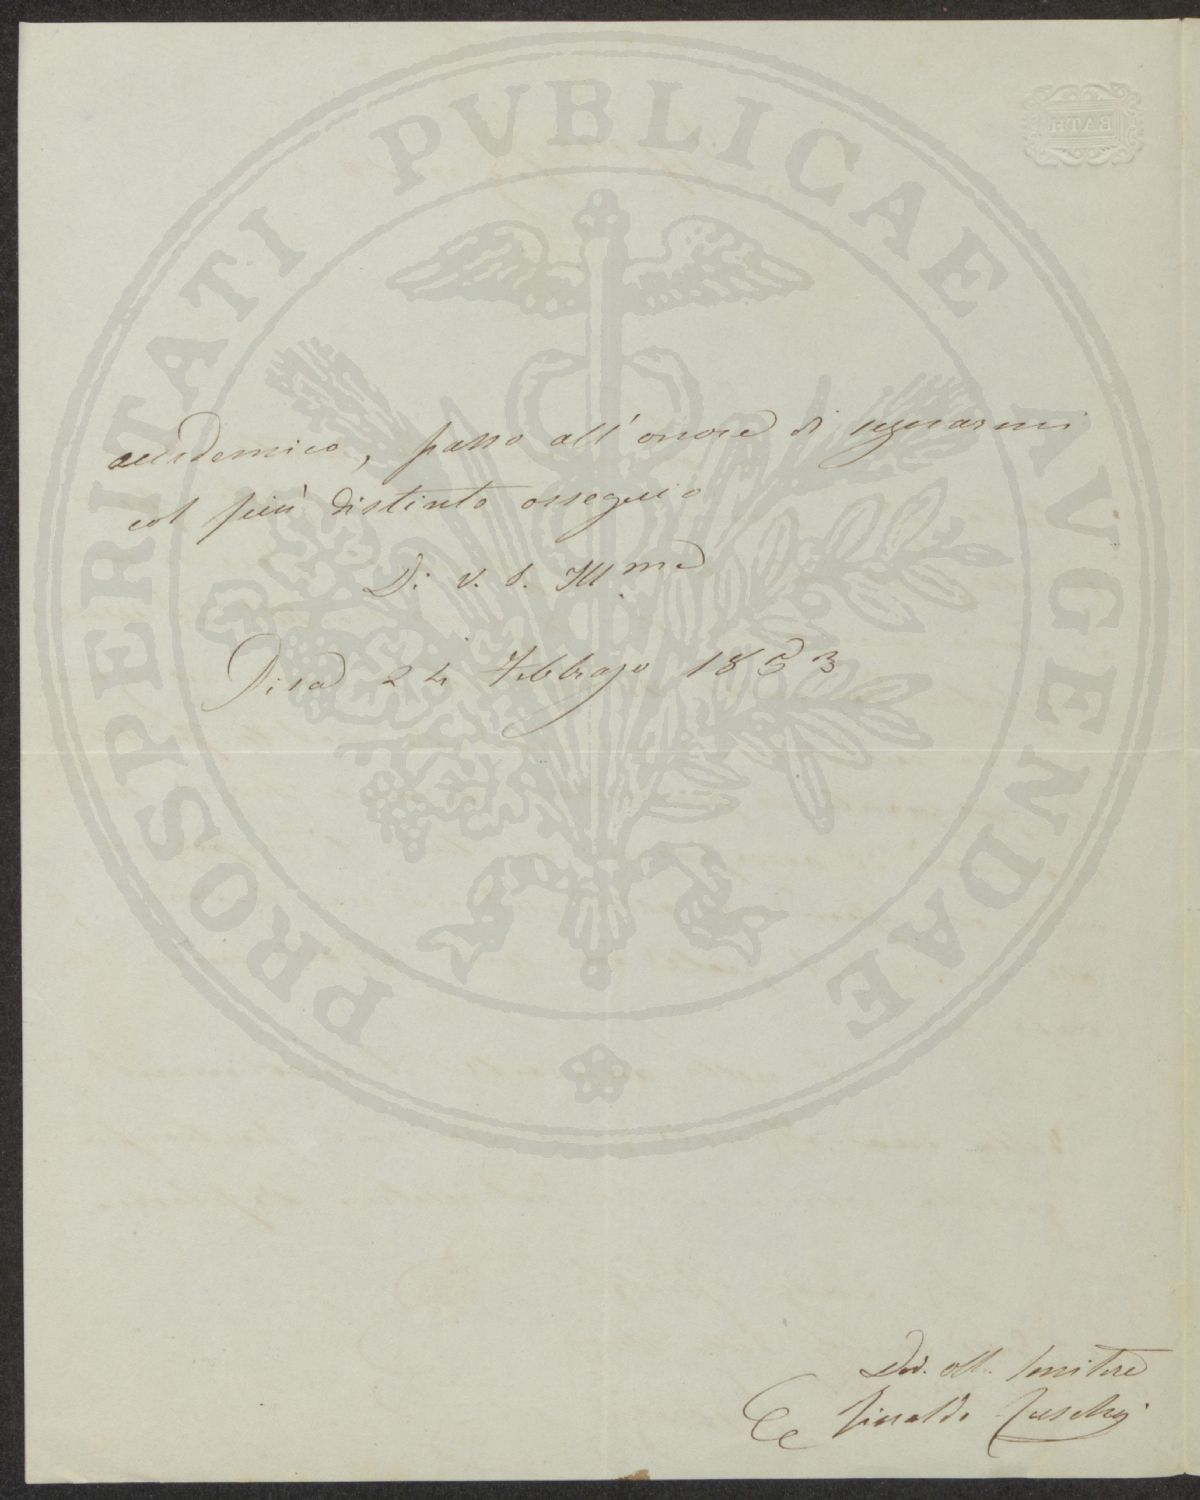 PROSPERITATI PVBLICAE AVGENDAE
BATH
accademico, passo all'onore di segnarmi
col più distinto ossequio
Di V. S. Illma
Pisa 24 Febbrajo 1853
Dev. obb. servitore
Rinaldo Ruschi